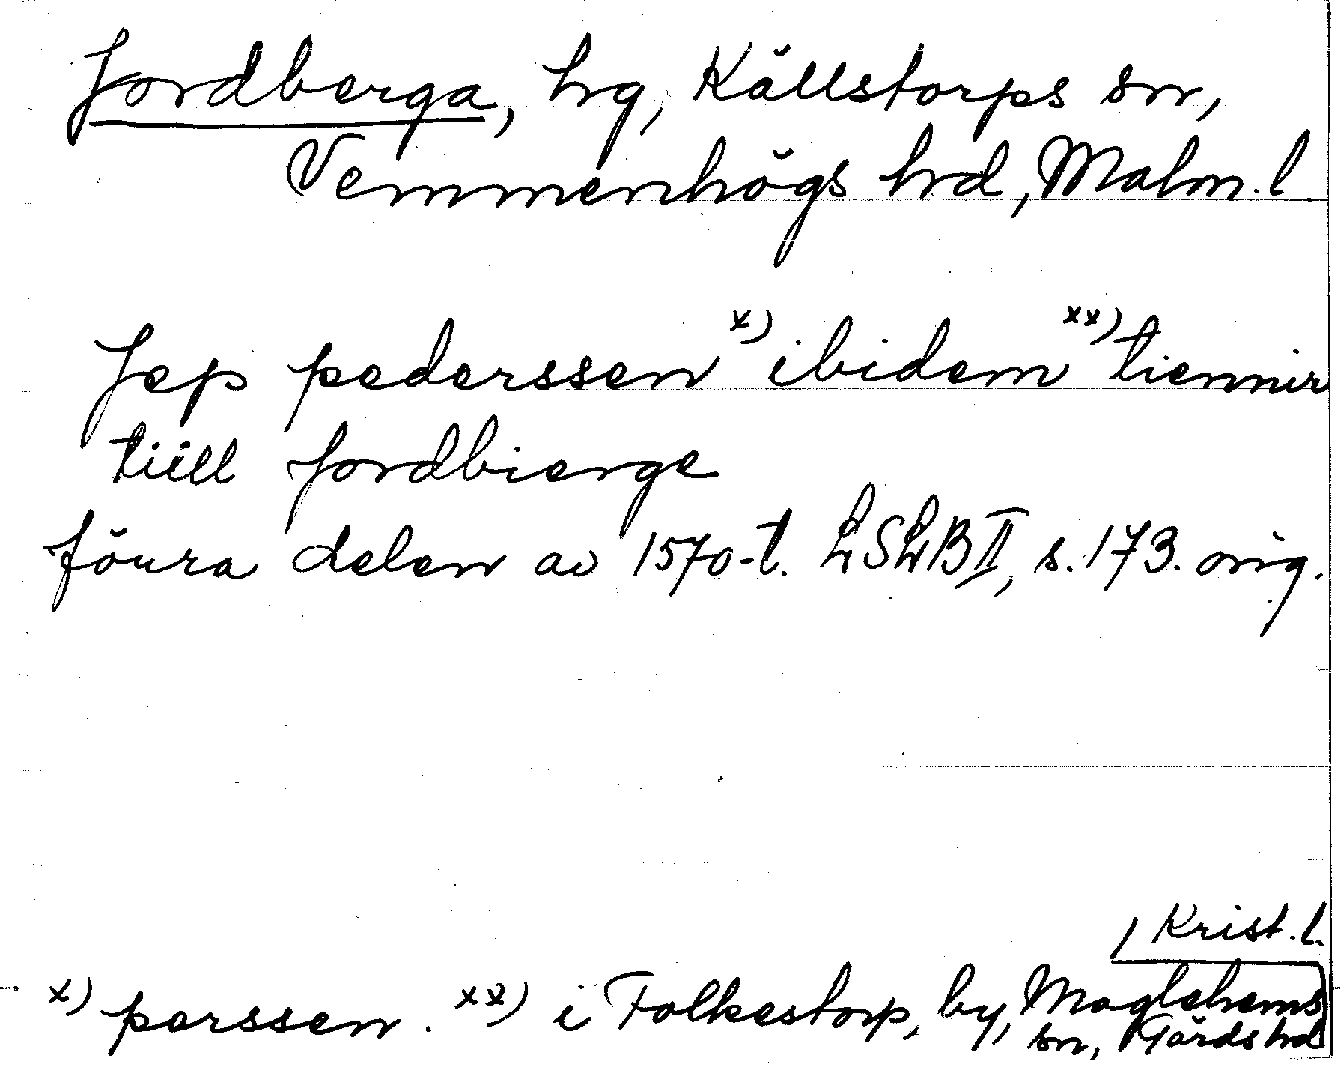 Jordberga, hrg, Källstorps sn,
Vemmenhögs hrd, Malm. l
Jep pederssen x) ibidem xx) tiennir
tiill Jordbierge
förra delen av 1570-t. LSLB II, s. 173. orig.
Krist. l.
x) perssen. xx) i Folkestorp, by, Maglehems
sn, Gärds hrd